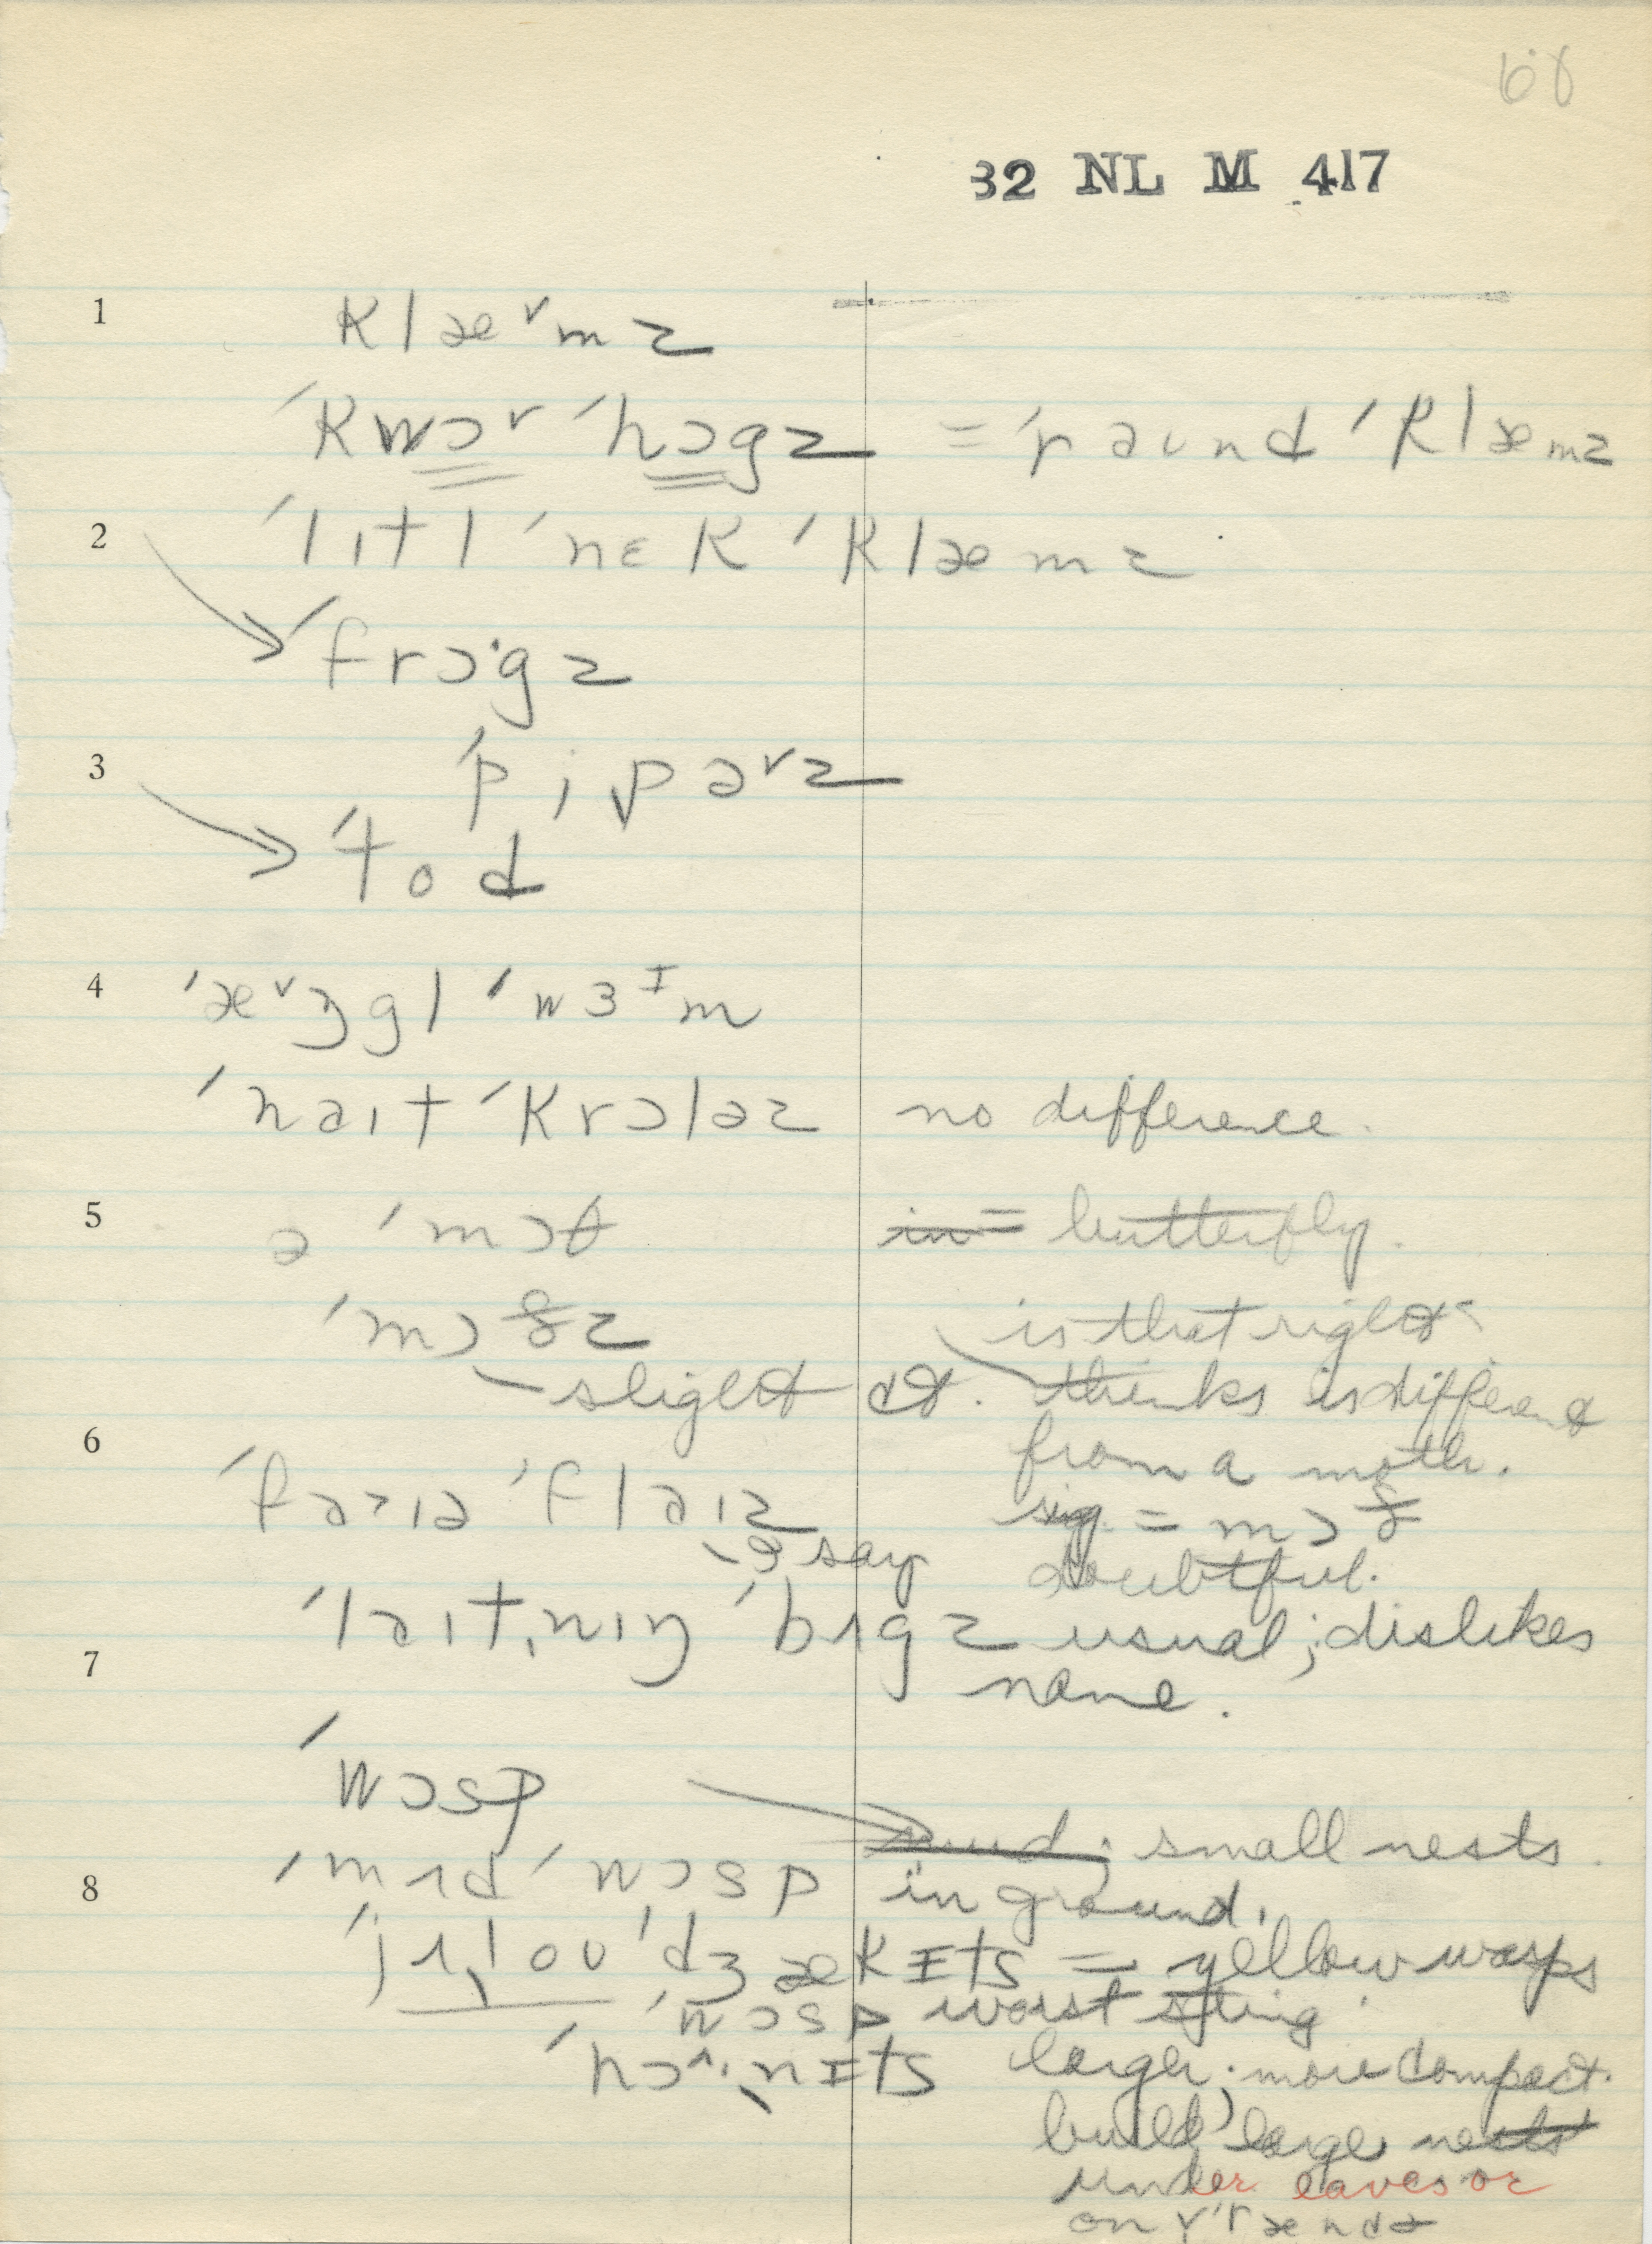 68
32 NL M 417
1 klæ˅mz
ˈkwɔ˅ ˈhɔgz = ˈraʊnd ˈklæmz
2 ˈlɪtl ˈnɛk ˈklæmz
ˈfrɔˑgz
3 ˈpipə˅z
ˈtod
4 ˈæ˅ŋgl ˈwɜɪm
ˈnaɪt ˈkrɔləz no difference.
5 ə ˈmɔθ in = butterfly.
ˈmɔðz is that right
slight ct. thinks is different
6 from a moth.
ˈfaɪə ˈflaɪz sig. = mɔð
say doubtful.
ˈlaɪtˌnɪŋ ˈbʌgz usual; dislikes
7 name.
ˈwɔsp
mud; small nests.
8 ˈmʌd ˈwɔsp in ground.
ˈjʌˌloʊ ˈdʒækɪts = yellow wasps
ˈwɔsp worst sting
ˈhɔˌnɪts larger; more compact.
build large nests
under eaves or
on